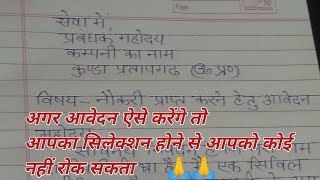 सेवा में,
प्रबंधक महोदय
कम्पनी का नाम
कुण्डा प्रतापगढ़ (उ० प्र०)
विषय- नौकरी प्राप्त करने हेतु आवेदन
अगर आवेदन ऐसे करेंगे तो
आपका सिलेक्शन होने से आपको कोई
नहीं रोक सकता 🙏🙏
एक सिविल